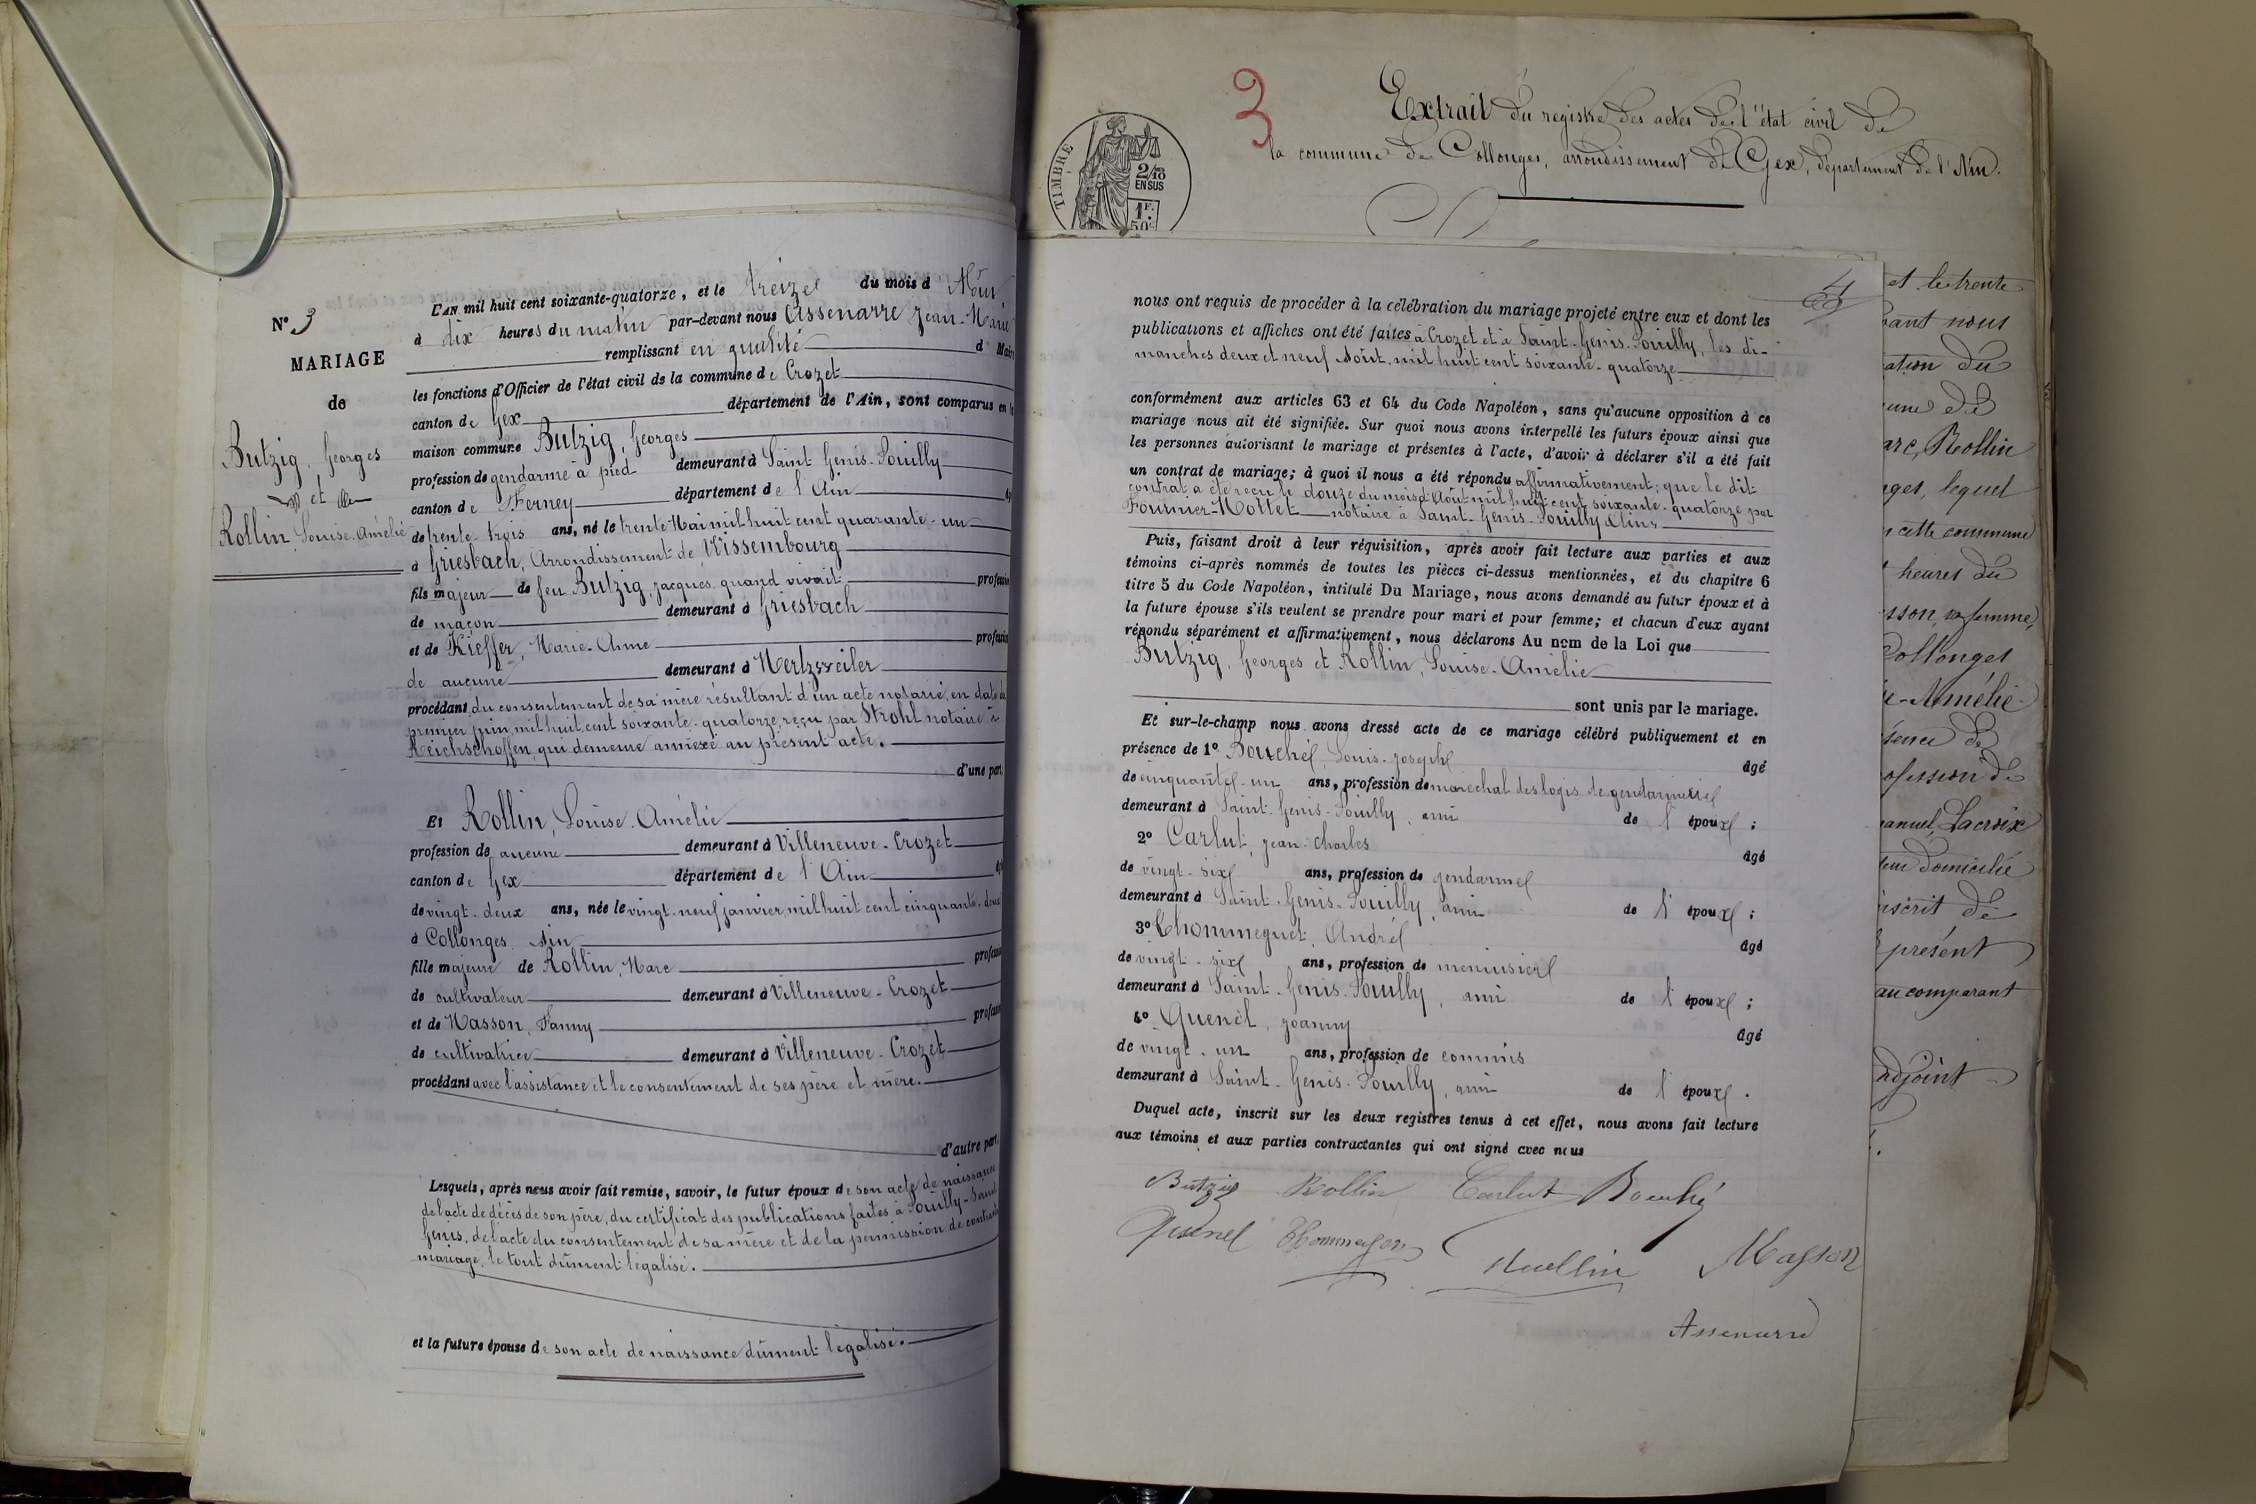 N° 3
MARIAGE
de
Butzig, Georges
et
Rollin, Louise-Amélie
L'AN mil huit cent soixante-quatorze, et le treize du mois d'Août
à dix heures du matin par-devant nous Assenarre Jean-Marie
remplissant en qualité d Maire
les fonctions d'Officier de l'état civil de la commune de Crozet
canton de Gex département de l'Ain, sont comparus en la
maison commune Butzig, Georges
profession de gendarme à pied demeurant à Saint-Genis-Pouilly
canton de Ferney département de l'Ain
de trente-trois ans, né le trente Mai mil huit cent quarante-un
à Griesbach, Arrondissement de Wissembourg
fils majeur de feu Butzig, Jacques, quand vivait profession
de maçon demeurant à Griesbach
et de Kieffer, Marie-Anne profession
de aucune demeurant à Mertzweiler
procédant du consentement de sa mère résultant d'un acte notarié, en date du
premier juin, mil huit cent soixante-quatorze, reçu par Strohl notaire à
Reichschoffen, qui demeure annexé au présent acte.
d'une part,
Et Rollin, Louise-Amélie
profession de aucune demeurant à Villeneuve-Crozet
canton de Gex département de l'Ain âgé
de vingt-deux ans, née le vingt-neuf janvier, mil huit cent cinquante-deux
à Collonges, Ain
fille majeure de Rollin, Marc profession
de cultivateur demeurant à Villeneuve-Crozet
et de Masson, Fanny profession
de cultivatrice demeurant à Villeneuve-Crozet
procédant avec l'assistance et le consentement de ses père et mère.
d'autre part,
Lesquels, après nous avoir fait remise, savoir, le futur époux de son acte de naissance
de l'acte de décès de son père, du certificat des publications faites à Pouilly-Saint
Genis, de l'acte du consentement de sa mère et de la permission de contracter
mariage, le tout dûment légalisé.
et la future épouse de son acte de naissance dûment légalisé.
3
TIMBRE
2/10 EN SUS
1F. 50c
Extrait du registre des actes de l'état civil de
la commune de Collonges, arrondissement de Gex, département de l'Ain.
nous ont requis de procéder à la célébration du mariage projeté entre eux et dont les
publications et affiches ont été faites à Crozet et à Saint-Genis-Pouilly, les di-
manches deux et neuf Août, mil huit cent soixante-quatorze
conformément aux articles 63 et 64 du Code Napoléon, sans qu'aucune opposition à ce
mariage nous ait été signifiée. Sur quoi nous avons interpellé les futurs époux ainsi que
les personnes autorisant le mariage et présentes à l'acte, d'avoir à déclarer s'il a été fait
un contrat de mariage; à quoi il nous a été répondu affirmativement; que le dit
contrat a été reçu le douze du mois d'Août mil huit cent soixante-quatorze par
Fournier-Mottet notaire à Saint-Genis-Pouilly
Puis, faisant droit à leur réquisition, après avoir fait lecture aux parties et aux
témoins ci-après nommés de toutes les pièces ci-dessus mentionnées, et du chapitre 6
titre 5 du Code Napoléon, intitulé Du Mariage, nous avons demandé au futur époux et à
la future épouse s'ils veulent se prendre pour mari et pour femme; et chacun d'eux ayant
répondu séparément et affirmativement, nous déclarons Au nom de la Loi que
Butzig, Georges et Rollin, Louise-Amélie
sont unis par le mariage.
Et sur-le-champ nous avons dressé acte de ce mariage célébré publiquement et en
présence de 1° Bouché, Louis-Joseph âgé
de cinquante-un ans, profession de maréchal des logis de gendarmerie
demeurant à Saint-Genis-Pouilly, ami de l'époux;
2° Carlut, Jean-Charles âgé
de vingt-six ans, profession de gendarme
demeurant à Saint-Genis-Pouilly, ami de l'époux;
3° Thommeguet, André âgé
de vingt-six ans, profession de menuisier
demeurant à Saint-Genis-Pouilly, ami de l'époux;
4° Quenel, Joanny âgé
de vingt-un ans, profession de commis
demeurant à Saint-Genis-Pouilly, ami de l'époux.
Duquel acte, inscrit sur les deux registres tenus à cet effet, nous avons fait lecture
aux témoins et aux parties contractantes qui ont signé avec nous
Butzig Rollin Carlut Bouché
Quenel Masson
Assenarre
et le trente
vant nous
ation du
une de
arc, Rollin
ges, lequel
n cette commune
heures du
sson, sa femme,
Collonges
e-Amélie
sence de
ofession de
anuel, Lacroix
domicilié
nscrit de
présent
au comparant
adjoint